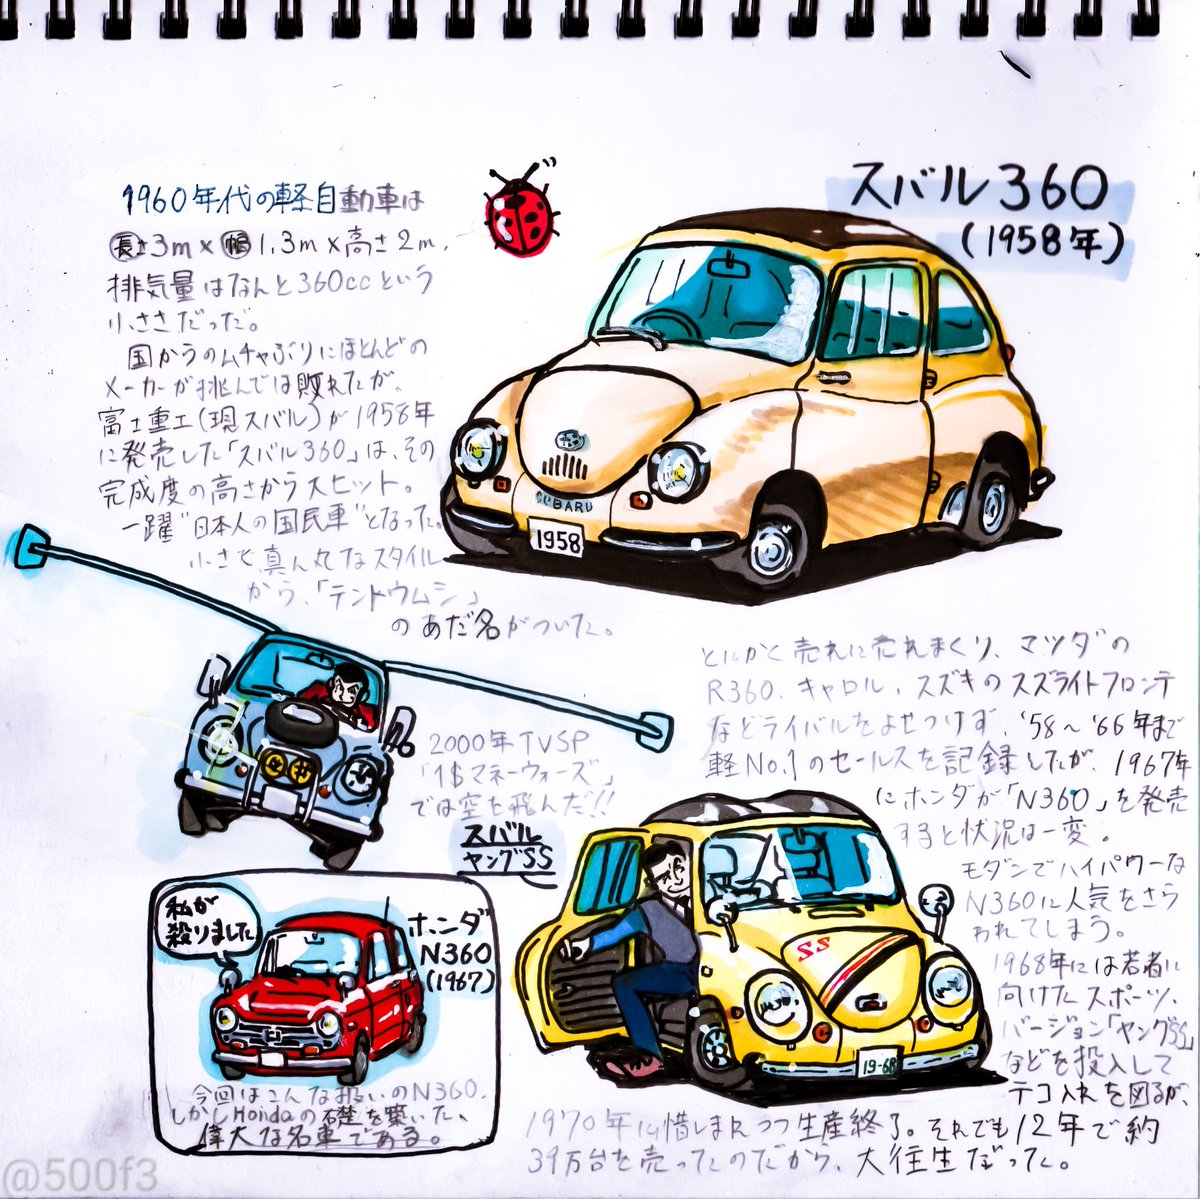 スバル360
(1958年)
1960年代の軽自動車は
長さ3m×幅1.3m×高さ2m,
排気量はなんと360ccという
小ささだった。
国からのムチャぶりにほとんどの
メーカーが挑んでは敗れたが、
富士重工(現スバル)が1958年
に発売した「スバル360」は、その
完成度の高さから大ヒット。
一躍“日本人の国民車”となった。
小さく真ん丸なスタイル
から、「テントウムシ」
のあだ名がついた。
SUBARU
1958
とにかく売れに売れまくり、マツダの
R360、キャロル、スズキのスズライトフロンテ
などライバルをよせつけず、'58〜'66年まで
軽No.1のセールスを記録したが、1967年
にホンダが「N360」を発売
すると状況は一変。
モダンでハイパワーな
N360に人気をさら
われてしまう。
1968年には若者に
向けたスポーツ、
バージョン「ヤングSS」
などを投入して
テコ入れを図るが、
1970年に惜しまれつつ生産終了。それでも12年で約
39万台を売ったのだから、大往生だった。
2000年TVSP
「1$マネーウォーズ」
では空を飛んだ!!
スバル
ヤングSS
SS
19-68
私が
殺りました
ホンダ
N360
(1967)
今回はこんな扱いのN360.
しかしHondaの礎を築いた、
偉大な名車である。
@500f3